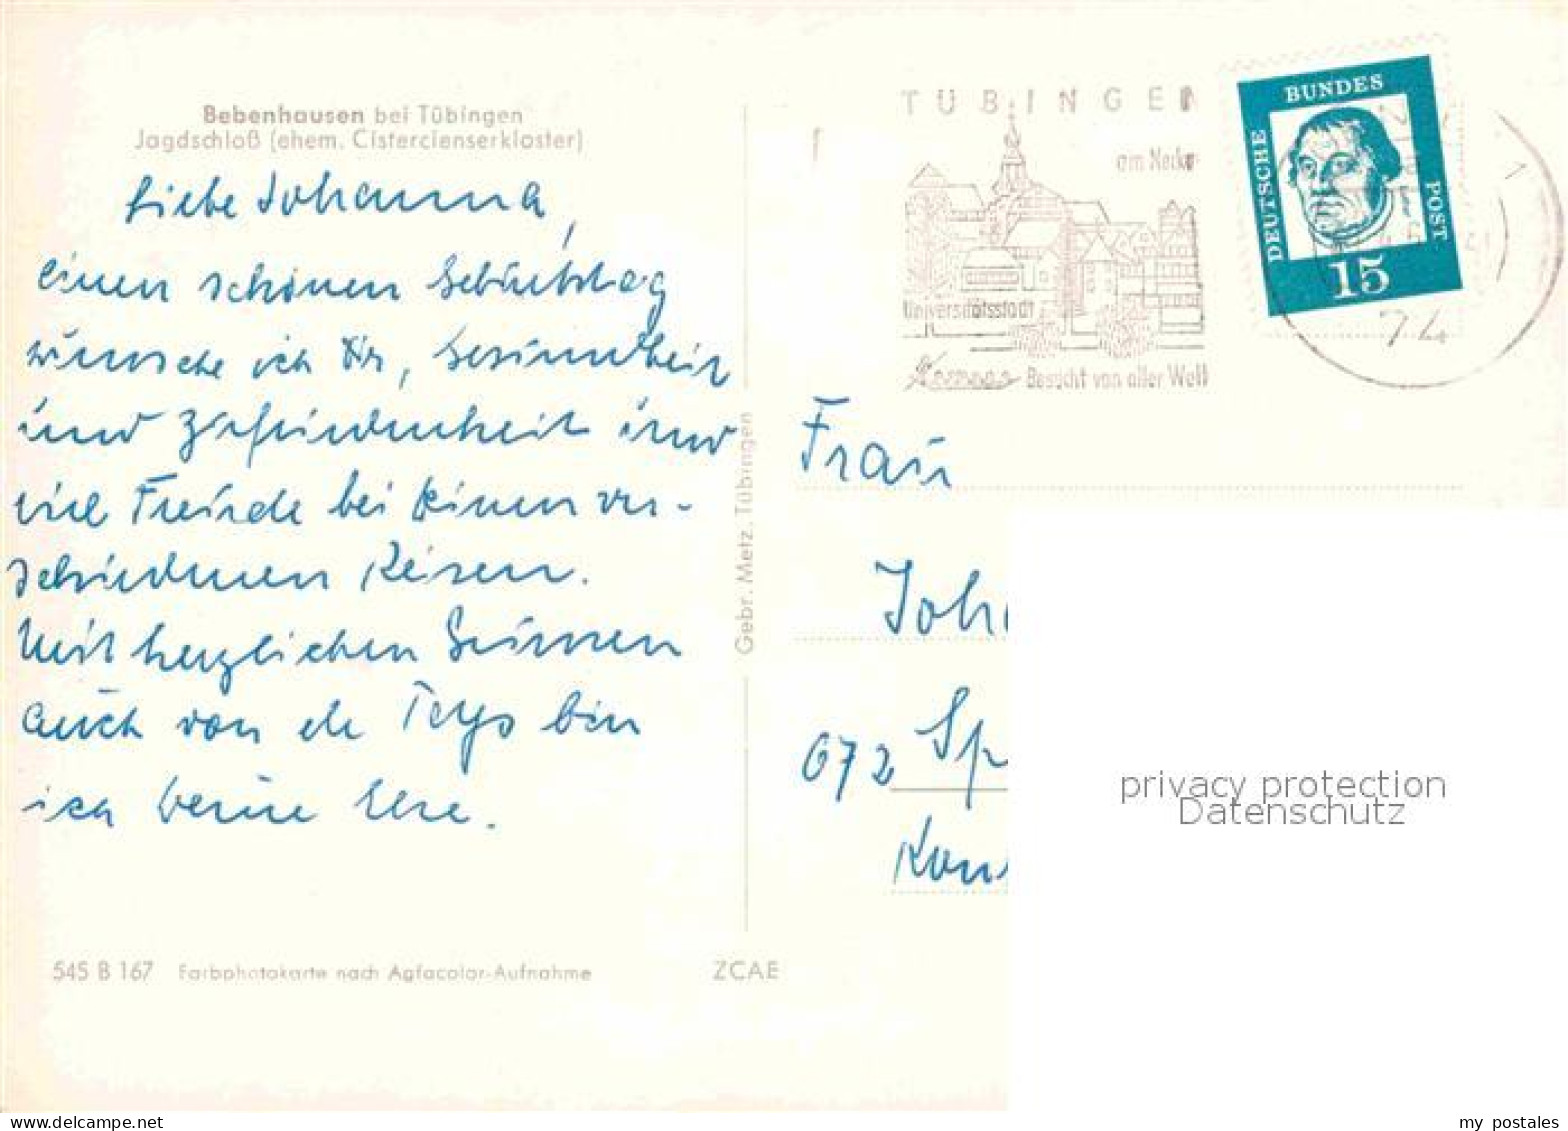 Bebenhausen bei Tübingen
Jagdschloß (ehem. Cistercienserkloster)
Liebe Johanna,
einen schönen Geburtstag
wünsche ich Dir, Gesundheit
und Zufriedenheit und
viel Freude bei Deinen ver-
schiedenen Reisen.
Mit herzlichen Grüssen
auch von
bin
ich Deine
545 B 167 Farbphotokarte nach Agfacolor-Aufnahme
ZCAE
Gebr. Metz, Tübingen
TÜBINGEN
am Neckar
Universitätsstadt
Besucht von aller Welt
DEUTSCHE
BUNDES
POST
15
74
Frau
Joh
672 Sp
Kon
privacy protection
Datenschutz
www.delcampe.net
my_postales